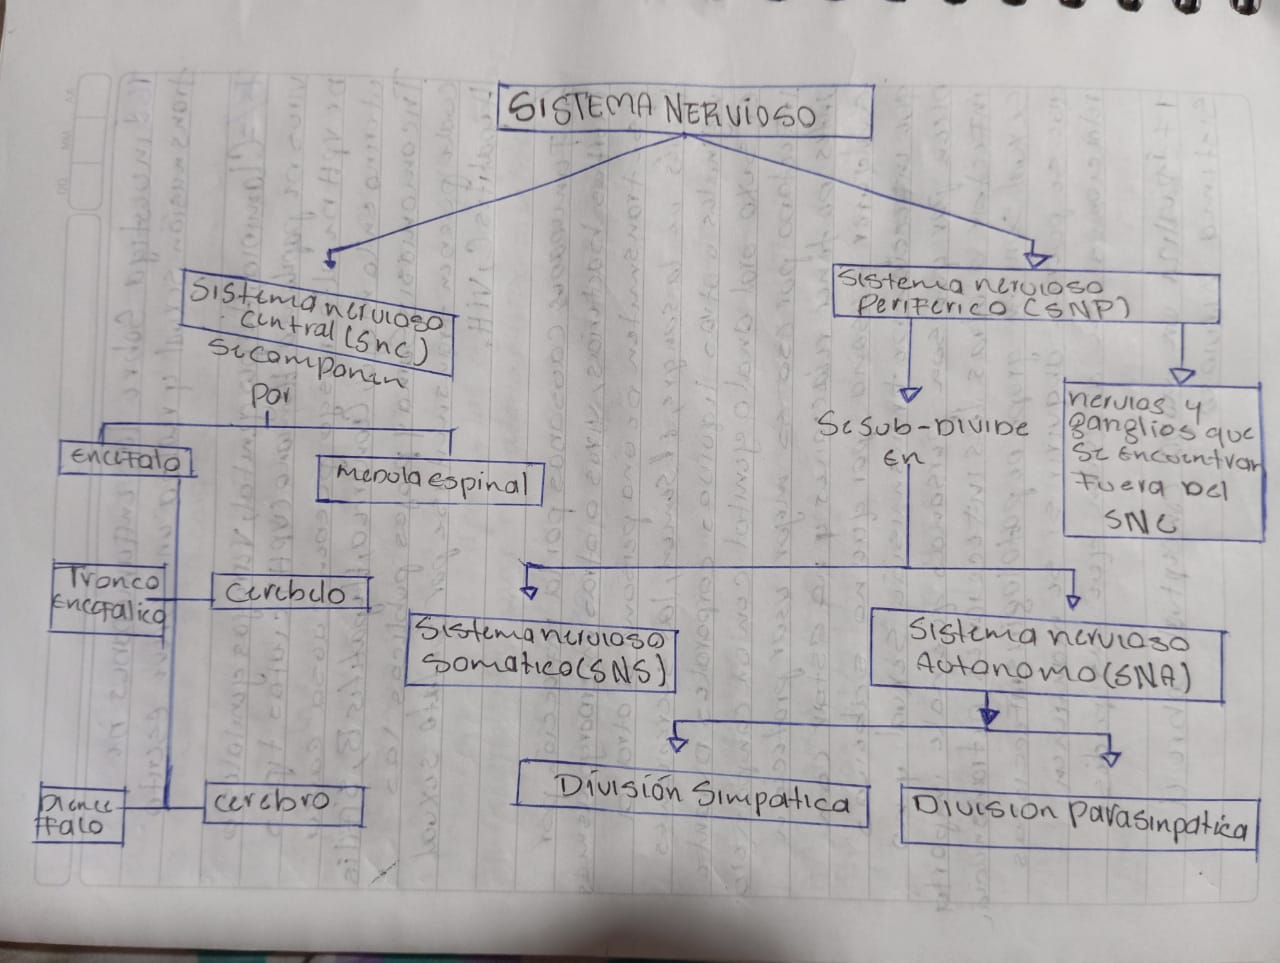 SISTEMA NERVIOSO
Sistema nervioso
central (Snc)
Se componen
por
Sistema nervioso
Periferico (SNP)
Encefalo
Medula espinal
Se sub-Divide
En
nervios y
ganglios que
Se Encuentran
Fuera Del
SNC
Tronco
Encefalico
Cerebelo
Sistema nervioso
Somatico (SNS)
Sistema nervioso
Autonomo (SNA)
Dience
Falo
cerebro
División Simpatica
Division Parasinpatica